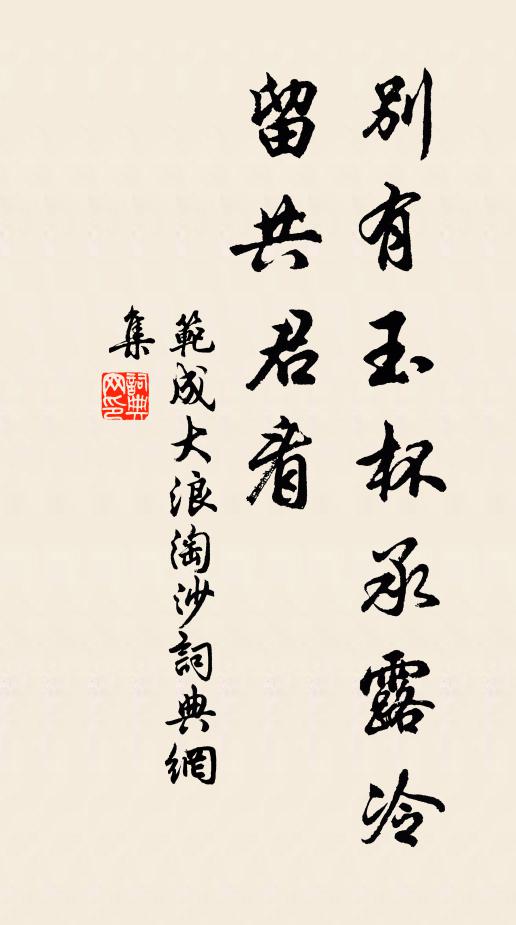 別有玉杯承露冷
留共君看
範成大浪淘沙詞典網
集
詞典
网印